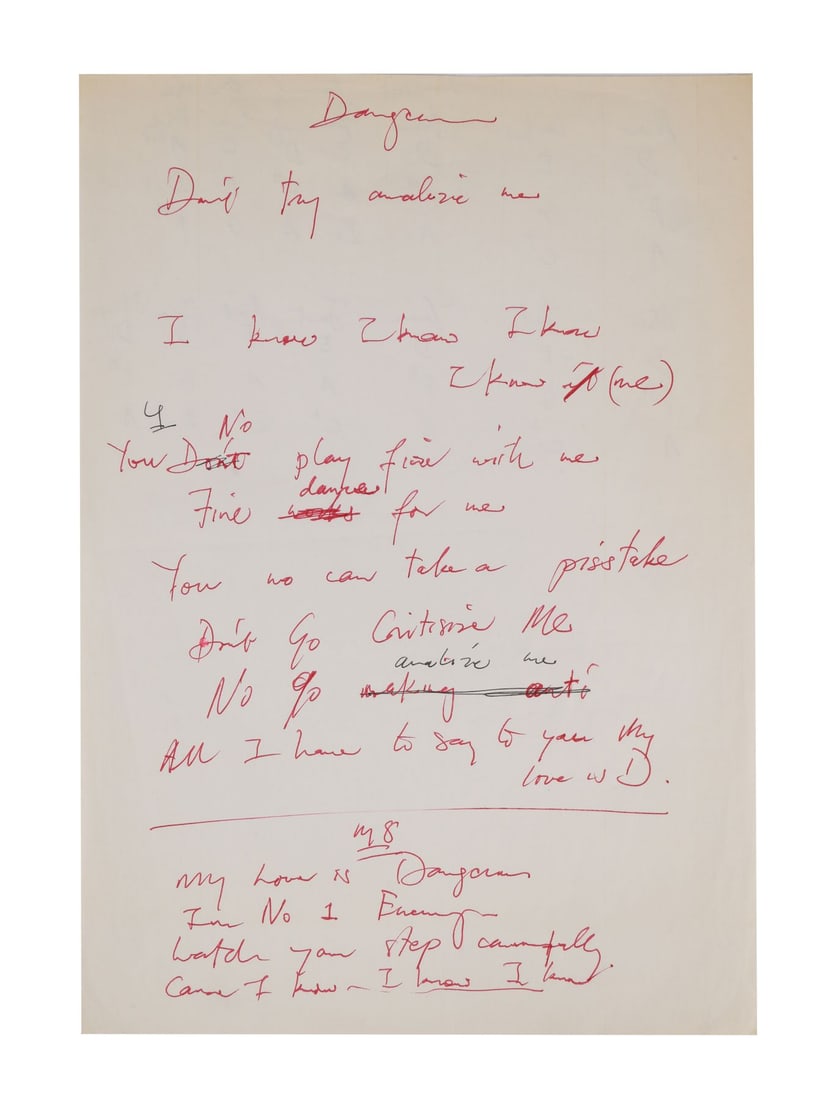 Dangerous
Don't try analize me
I know I know I know
I know it (me)
No
You Don't play fire with me
dangerous
Fire works for me
You no can take a pisstake
Don't Go Critisize Me
analize me
No go making anti
All I have to say to you My
love is D.
M8
My Love is Dangerous
I'm No 1 Enemy
Watch your step carefully
Cause I know - I know I know